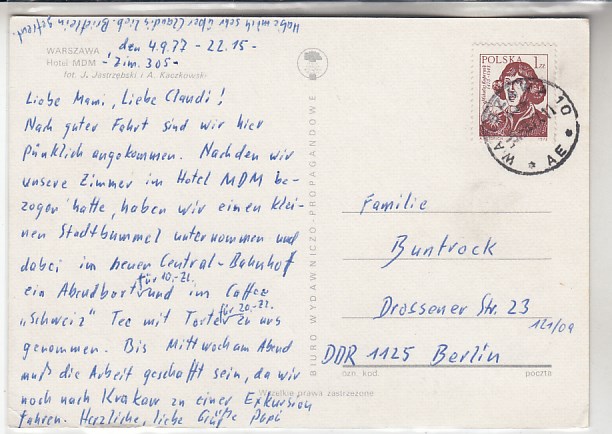 Habe mich sehr über Claudi's lieb. Brieflein gefreut.
WARSZAWA, den 4.9.77 - 22.15 -
Hotel MDM - Zim. 305 -
fot. J. Jastrzębski i A. Kaczkowski
Liebe Mami, Liebe Claudi!
Nach guter Fahrt sind wir hier
pünklich angekommen. Nachden wir
unsere Zimmer im Hotel MDM be-
zogen hatte, haben wir einen klei-
nen Stadtbummel unternommen und
dabei im neuen Central-Bahnhof
für 10,-Zl.
ein Abendbort und im Caffee
für 20,-Zl.
"Schweiz" Tee mit Torte zu uns
genommen. Bis Mittwoch am Abend
muß die Arbeit geschafft sein, da wir
noch nach Krakau zu einer Exkursion
fahren. Herzliche, liebe Grüße Papi
BIURO WYDAWNICZO-PROPAGANDOWE
Wszelkie prawa zastrzeżone
POLSKA 1 ZŁ
WARSZAWA 10
* AE *
Familie
Buntrock
Drossener Str. 23
121/09
DDR 1125 Berlin
ozn. kod. poczta